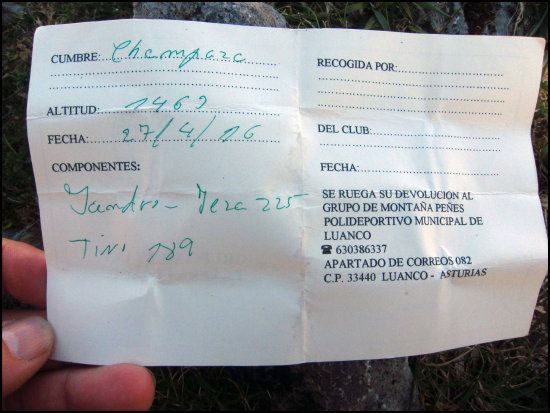 CUMBRE: Champaza
ALTITUD: 1462
FECHA: 27/4/16
COMPONENTES:
225
Tini 189
RECOGIDA POR:
DEL CLUB:
FECHA:
SE RUEGA SU DEVOLUCIÓN AL
GRUPO DE MONTAÑA PEÑES
POLIDEPORTIVO MUNICIPAL DE
LUANCO
☎ 630386337
APARTADO DE CORREOS 082
C.P. 33440 LUANCO - ASTURIAS